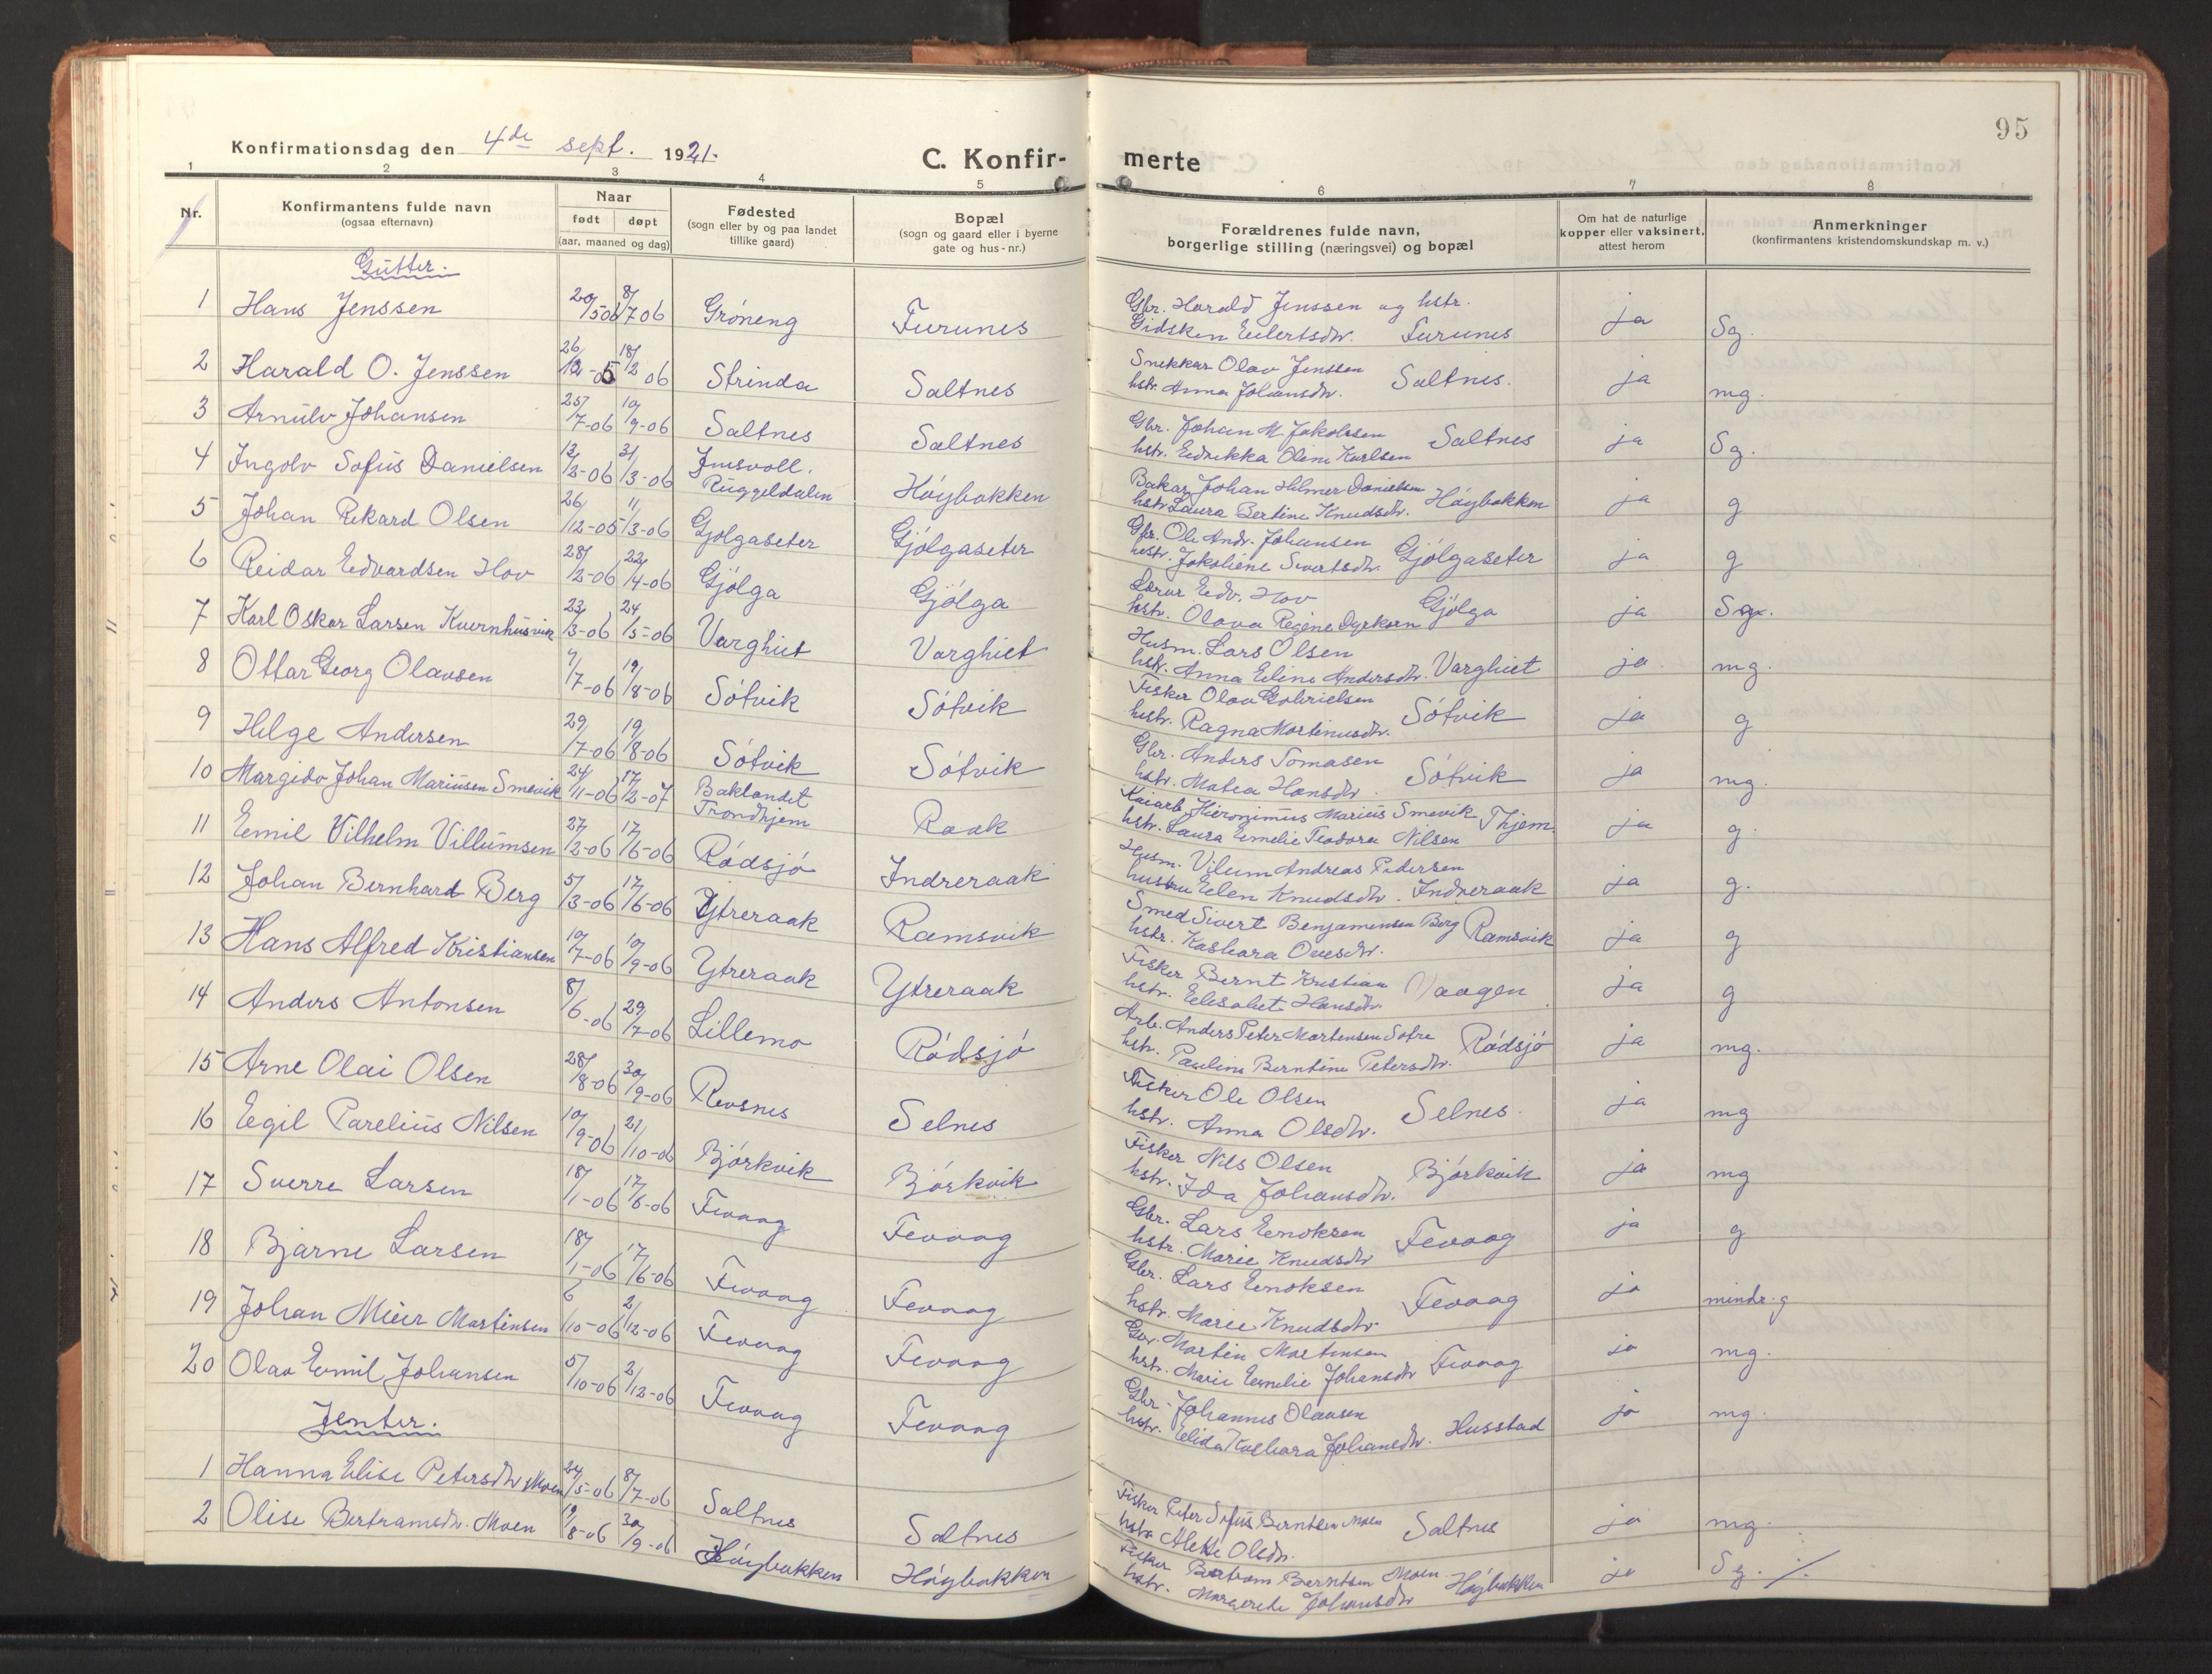 95
Konfirmationsdag den 4de sept. 1921.
C. Konfir-
merte
1 2 3 4 5 6 7 8
Nr.
Konfirmantens fulde navn
(ogsaa efternavn)
Naar
født døpt
(aar, maaned og dag)
Fødested
(sogn eller by og paa landet
tillike gaard)
Bopæl
(sogn og gaard eller i byerne
gate og hus-nr.)
Forældrenes fulde navn,
borgerlige stilling (næringsvei) og bopæl
Om hat de naturlige
kopper eller vaksinert,
attest herom
Anmerkninger
(konfirmantens kristendomskundskap m. v.)
Gutter.
1 Hans Jenssen 20/5 06 8/7 06 Gróneng Furunes Gbr. Harald Jenssen og hstr. ja Sg.
Gidsken Eilertsdtr. Furunes
2 Harald O. Jenssen 26/12-05 18/2 06 Strinda Saltnes Snekkar Olav Jenssen Saltnes. ja mg.
hstr. Anna Johansdtr.
3 Arnulv Johansen 25/7-06 10/9-06 Saltnes Saltnes Gbr. Johan M. Jakobsen Saltnes ja Sg.
hstr. Edvikka Oline Karlsen
4 Ingolv Sofus Danielsen 13/2-06 31/3-06 Jmsvoll. Høybakken Bakar Johan Hilmer Danielsen Høybakken ja g
Ruggeldalen hstr. Laura Bertine Knudsdtr.
5 Johan Rikard Olsen 26/12-05 11/3-06 Gjólgaseter Gjólgaseter Gbr. Ole Andr. Johansen Gjólgaseter ja g
hstr. Jakobine Sivertsdtr.
6 Reidar Edvardsen Hov 28/2-06 22/4-06 Gjólga Gjólga Lærar Edv. Hov Gjólga ja Sg.
hstr. Olava Regine Dyrkorn
7 Karl Oskar Larsen Kvernhusvik 23/3-06 24/5-06 Varghiet Varghiet Husm. Lars Olsen ja mg.
hstr. Anna Eline Andersdtr. Varghiet
8 Ottar Georg Olavsen 7/7-06 19/8-06 Sótvik Sótvik Fisker Olav Gabrielsen Sótvik ja g
hstr. Ragna Martinusdtr.
9 Helge Andersen 29/7-06 19/8-06 Sótvik Sótvik Gbr. Anders Tomasen Sótvik ja mg.
hstr. Matea Hansdtr.
10 Margido Johan Mariusen Smevik 24/11-06 17/2-07 Baklandet Raak Kaiarb. Hieronimus Marius Smevik Thjem ja g.
Trondhjem hstr. Laura Emelie Teodora Nilsen
11 Emil Vilhelm Villumsen 27/2-06 17/6-06 Ródsjó Indreraak Husm. Vilum Andreas Pedersen ja g.
hustru Elen Knudsdtr. Indreraak
12 Johan Bernhard Berg 5/3-06 17/6-06 Ytreraak Ramsvik Smed Sivert Benjaminsen Berg Ramsvik ja g
hstr. Kasbara Ovesdtr.
13 Hans Alfred Kristiansen 10/7-06 10/9-06 Ytreraak Ytreraak Fisker Bernt Kristian Vaagen ja g
hstr. Elisabet Hansdtr.
14 Anders Antonsen 8/6-06 29/7-06 Lillemo Ródsjó Arb. Anders Peter Mortensen Ródsjó ja mg.
hstr. Pauline Berntine Petersdtr.
15 Arne Olai Olsen 28/8-06 30/9-06 Revsnes Selnes Fisker Ole Olsen Selnes. ja mg
hstr. Anna Olsdtr.
16 Egil Parelius Nilsen 10/9-06 21/10-06 Bjórkvik Bjórkvik Fisker Nils Olsen Bjórkvik ja mg
hstr. Ida Johansdtr.
17 Sverre Larsen 18/1-06 17/6-06 Fevaag Fevaag Gbr. Lars Enoksen Fevaag ja g
hstr. Marie Knudsdtr
18 Bjarne Larsen 18/1-06 17/6-06 Fevaag Fevaag Gbr. Lars Enoksen Fevaag ja mindr. g
hstr. Marie Knudsdtr
19 Johan Meier Martinsen 6/10-06 2/12-06 Fevaag Fevaag Gbr. Martin Martinsen Fevaag ja mg.
hstr. Marie Emelie Johansdtr
20 Olav Emil Johansen 5/10-06 2/12-06 Fevaag Fevaag Gbr. Johannes Olausen ja mg.
hstr. Elida Kasbara Johansdtr. Husstad
Jenter.
1 Hanna Elise Petersdtr Moen 24/5-06 8/7-06 Saltnes Saltnes Fisker Peter Sofus Berntsen Moen Saltnes ja mg.
hstr Olsdtr.
2 Olise Bertramsdtr. Moen 19/8-06 30/9-06 Høybakken Høybakken Fisker Bertram Berntsen Moen Høybakken ja Sg. ./.
hstr. Margrete Johansdtr